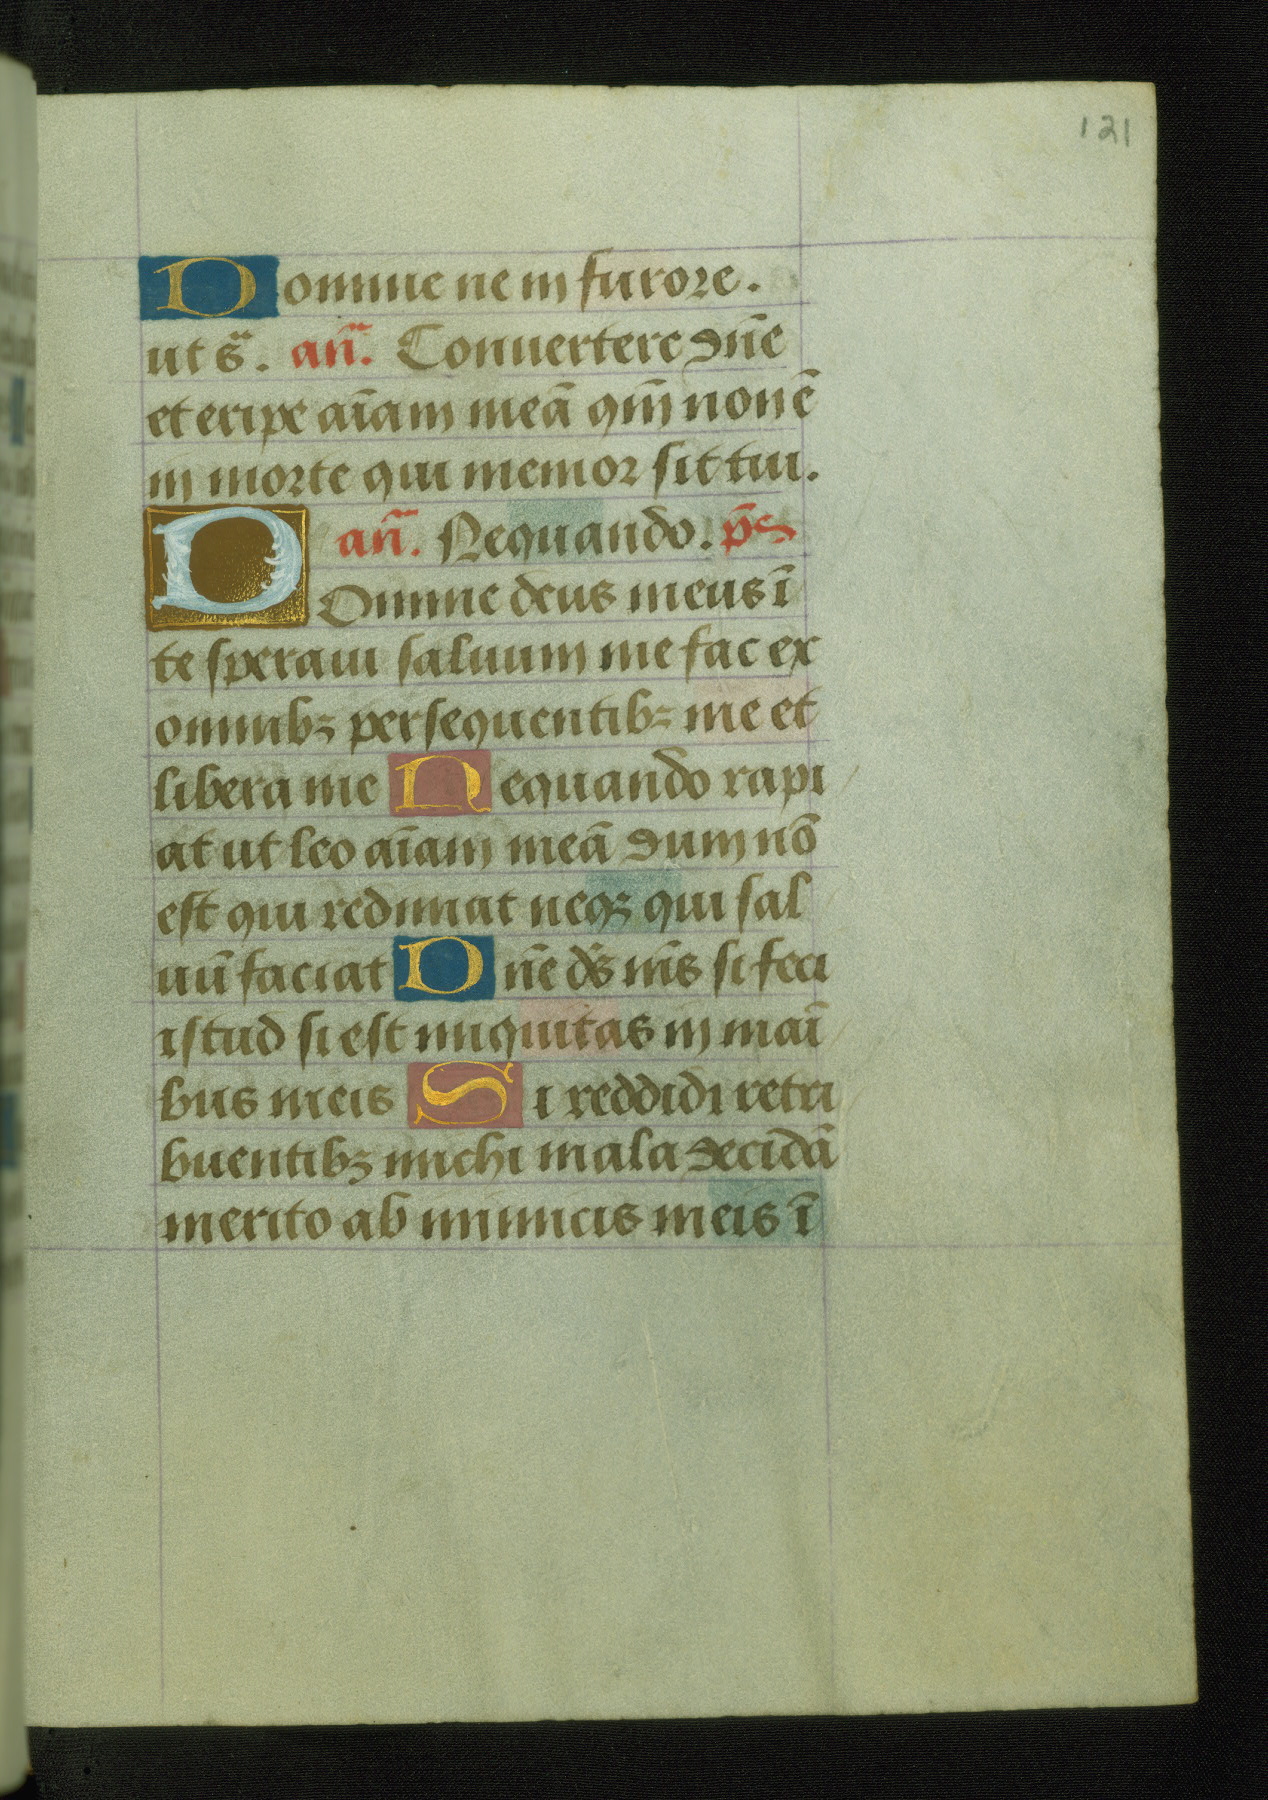 121
Domine ne in furore.
ut s̄. an̄. Convertere dn̄e
et eripe aīam meā qm̄ non ē
in morte qui memor sit tui.
an̄. Nequando. p̄s
Domine deus meus ī
te speravi saluum me fac ex
omnibꝫ persequentibꝫ me et
libera me Nequando rapi
at ut leo aīam meā dum nō
est qui redimat neqꝫ qui sal
uū faciat Dn̄e ds̄ ms̄ si feci
istud si est iniquitas in maī
bus meis Si reddidi retri
buentibꝫ michi mala decidā
merito ab inimicis meis ī